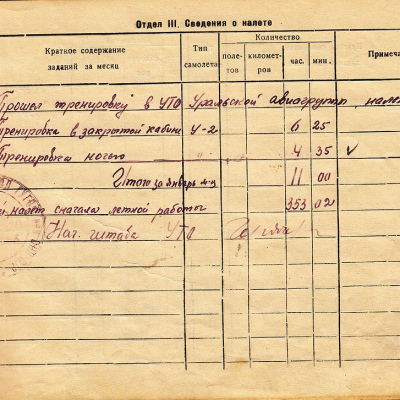 Отдел III. Сведения о налете
Краткое содержание заданий за месяц
Тип самолета
Количество
полетов
километров
час.
мин.
Примеча
Прошел тренировку в УТО Уральской авиагрупп, нале
Тренировка в закрытой кабине У-2 6 25
Тренировка ночью " 4 35 ✓
Итого за январь м-ц 11 00
й налет сначала летной работы 353 02
Нач. штаба УТО